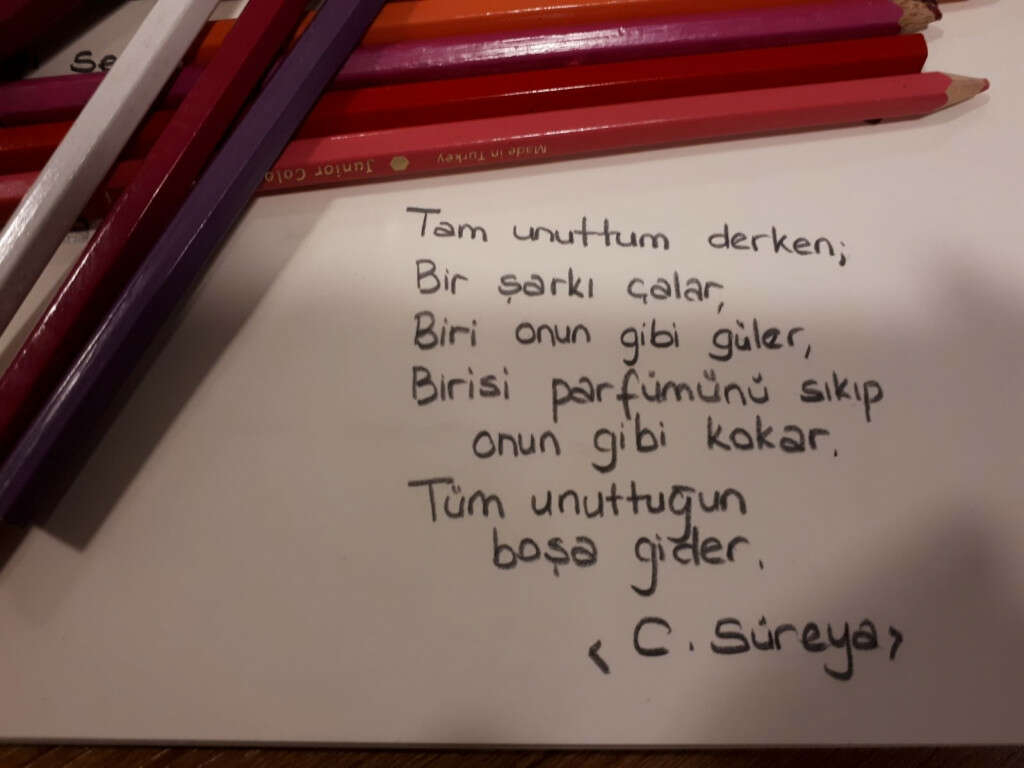 se
Made in Turkey
Junior Colo
Tam unuttum derken;
Bir şarkı çalar,
Biri onun gibi güler,
Birisi parfümünü sıkıp
onun gibi kokar.
Tüm unuttuğun
boşa gider.
< C. Süreya >